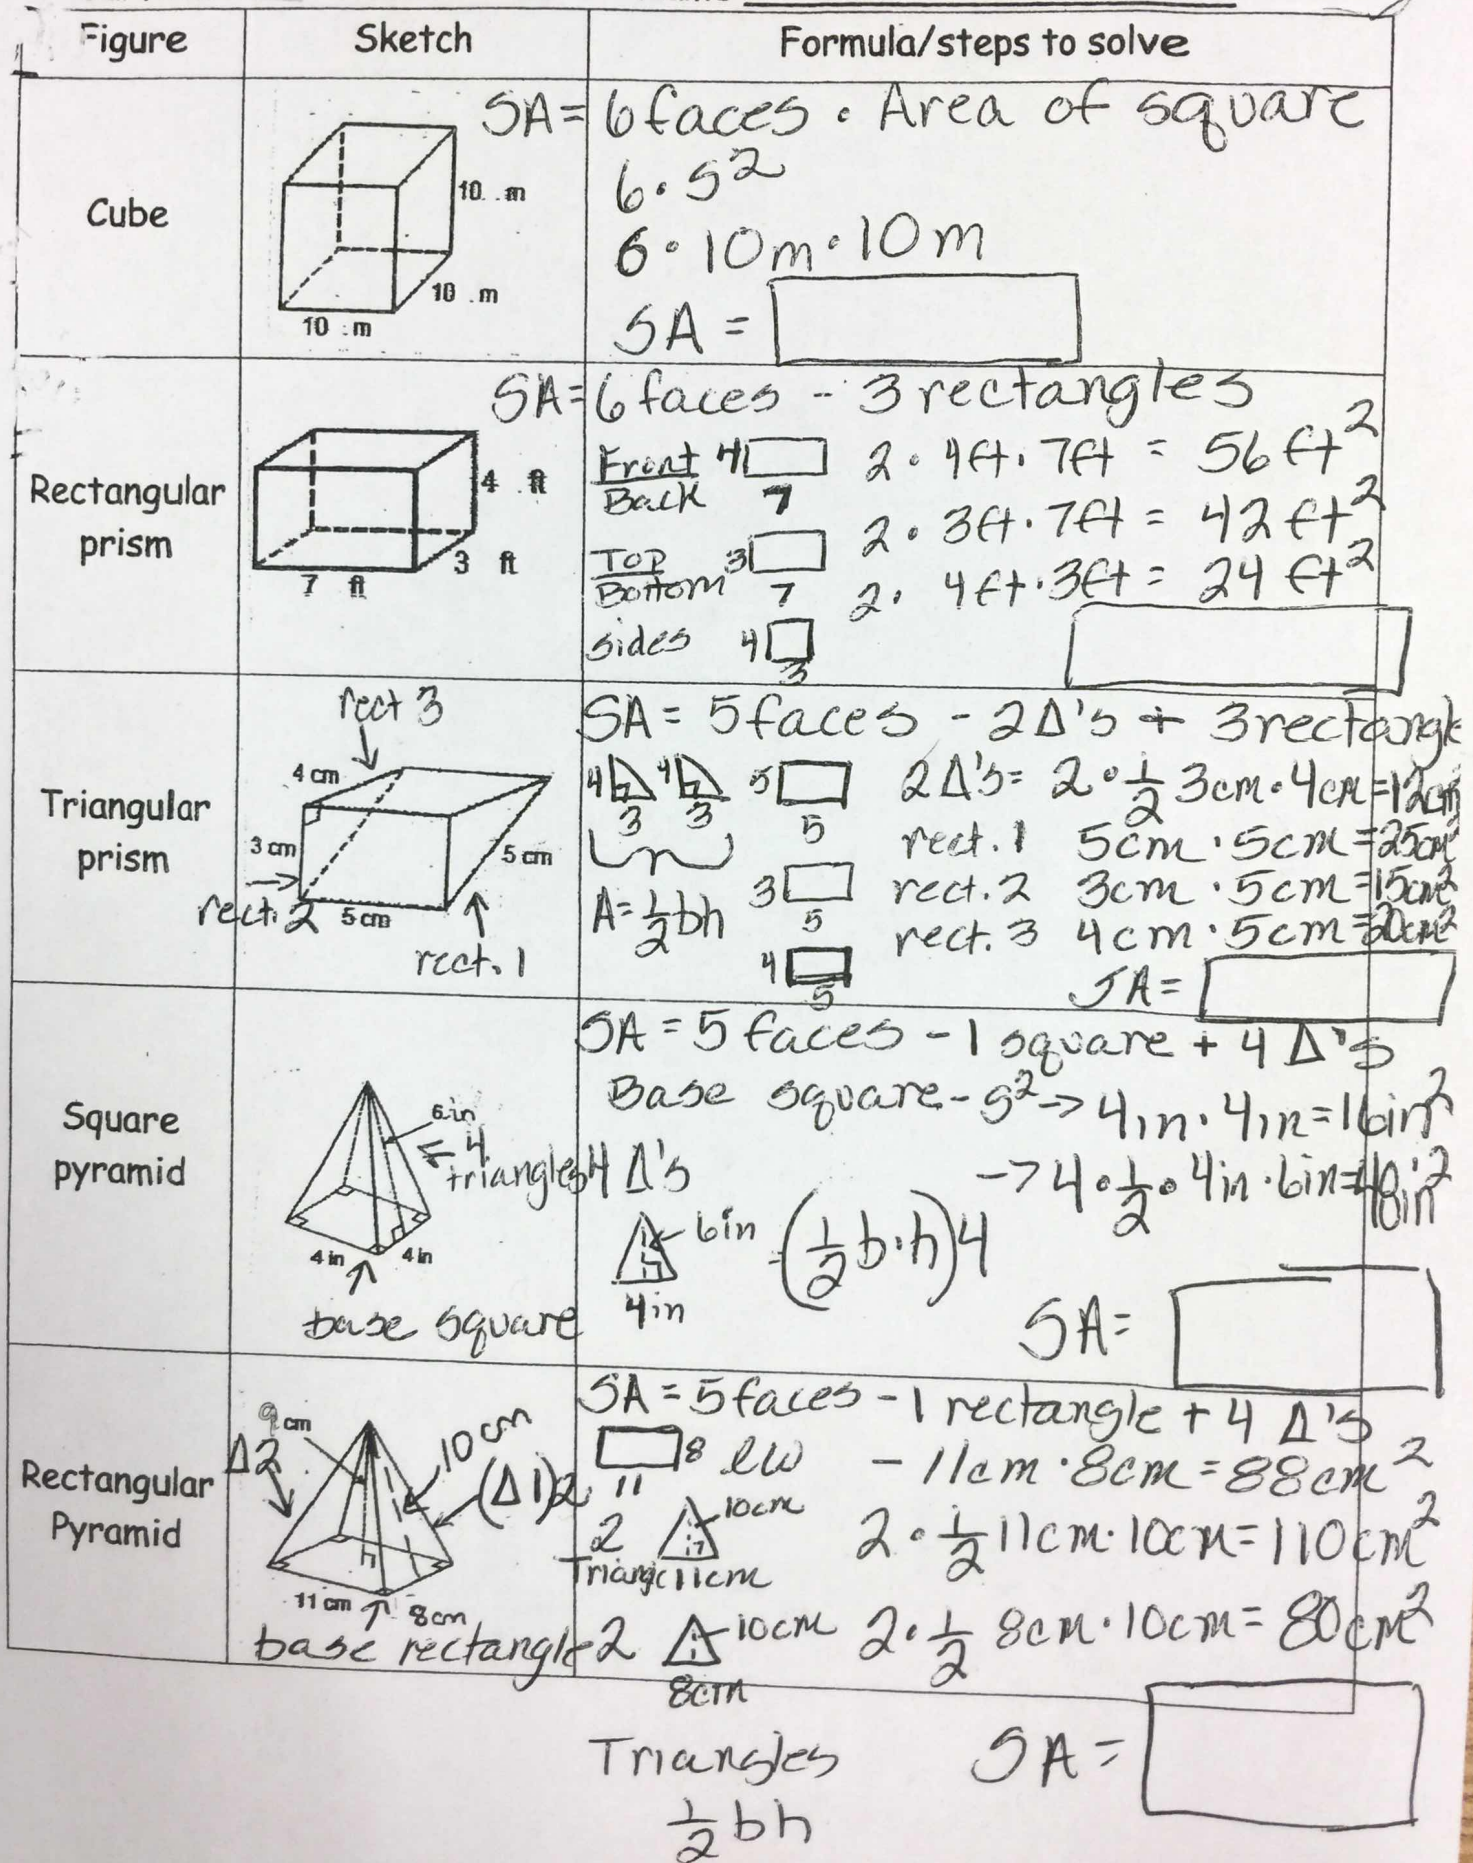 Figure Sketch Formula/steps to solve
Cube
10 m
10 m
10 m
SA = 6 faces · Area of square
6 · s²
6 · 10m · 10m
SA =
Rectangular
prism
4 ft
3 ft
7 ft
SA = 6 faces - 3 rectangles
Front 4 7 2 · 4ft · 7ft = 56 ft²
Back
Top 3 7 2 · 3ft · 7ft = 42 ft²
Bottom
sides 4 3 2 · 4ft · 3ft = 24 ft²
Triangular
prism
rect 3
4 cm
3 cm
5 cm
rect. 2 5 cm
rect. 1
SA = 5 faces - 2Δ's + 3 rectangle
4 3 4 3 5 5 2Δ's = 2 · 1/2 3cm · 4cm = 12cm
rect. 1 5cm · 5cm = 25cm²
3 5 rect. 2 3cm · 5cm = 15cm²
A = 1/2 bh
4 5 rect. 3 4cm · 5cm = 20cm²
SA =
Square
pyramid
6 in
4
triangles
4 in 4 in
base square
SA = 5 faces - 1 square + 4 Δ's
Base square - s² → 4in · 4in = 16in²
4 Δ's → 4 · 1/2 · 4in · 6in = 48in²
6in = (1/2 b · h)4
4in
SA =
Rectangular
Pyramid
9 cm
Δ2
10 cm
(Δ1)2
11 cm 8cm
base rectangle
SA = 5 faces - 1 rectangle + 4 Δ's
8 lw - 11cm · 8cm = 88cm²
11
2 10cm 2 · 1/2 11cm · 10cm = 110cm²
11cm
2 10cm 2 · 1/2 8cm · 10cm = 80cm²
8cm
Triangles SA =
1/2 bh